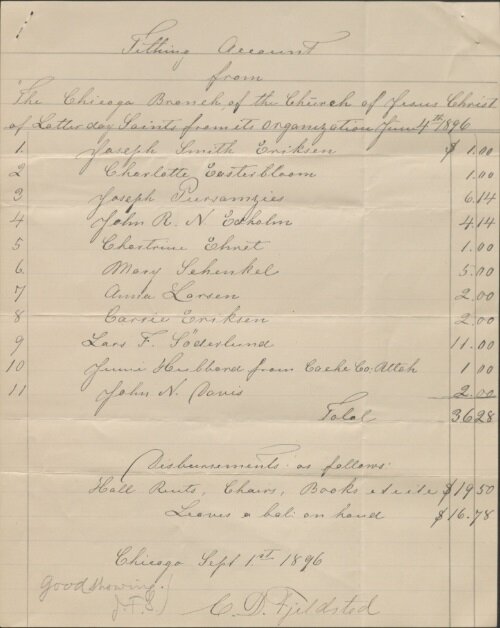 Tithing Account
from
The Chicago Branch of the Church of Jesus Christ
of Latter day Saints from its Organization June 4th 1896
1 Joseph Smith Eriksen $ 1.00
2 Charlotte Easterbloom 1.00
3 Joseph 6.14
4 John R. N. Exholm 4.14
5 Ehret 1.00
6 Mary Schenkel 5.00
7 Anna Larsen 2.00
8 Carsie Eriksen 2.00
9 Lars F. Söderlund 11.00
10 Hubbard from Cache Co. Utah 1 00
11 John N. Davis 2.00
Total 36 28
Disbursements as follows
Hall Rents, Chairs, Books $19 50
Leaves a bal. on hand $16.78
Chicago Sept 1st 1896
Good showing.
C. D. Fjeldsted